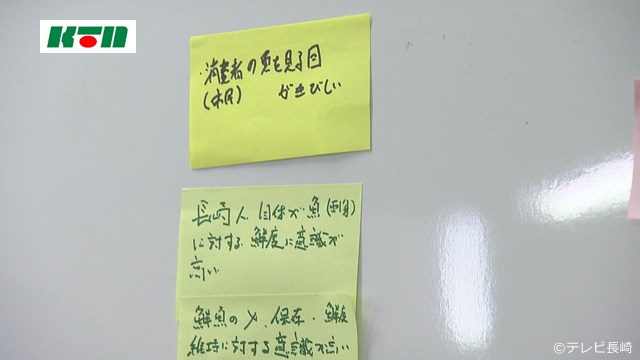 KTN
・消費者の魚を見る目
(市民) がきびしい
長崎人自体が魚(刺身)
に対する鮮度に意識が
高い
鮮魚の〆、保存・鮮度
維持に対する意識が高い
©テレビ長崎